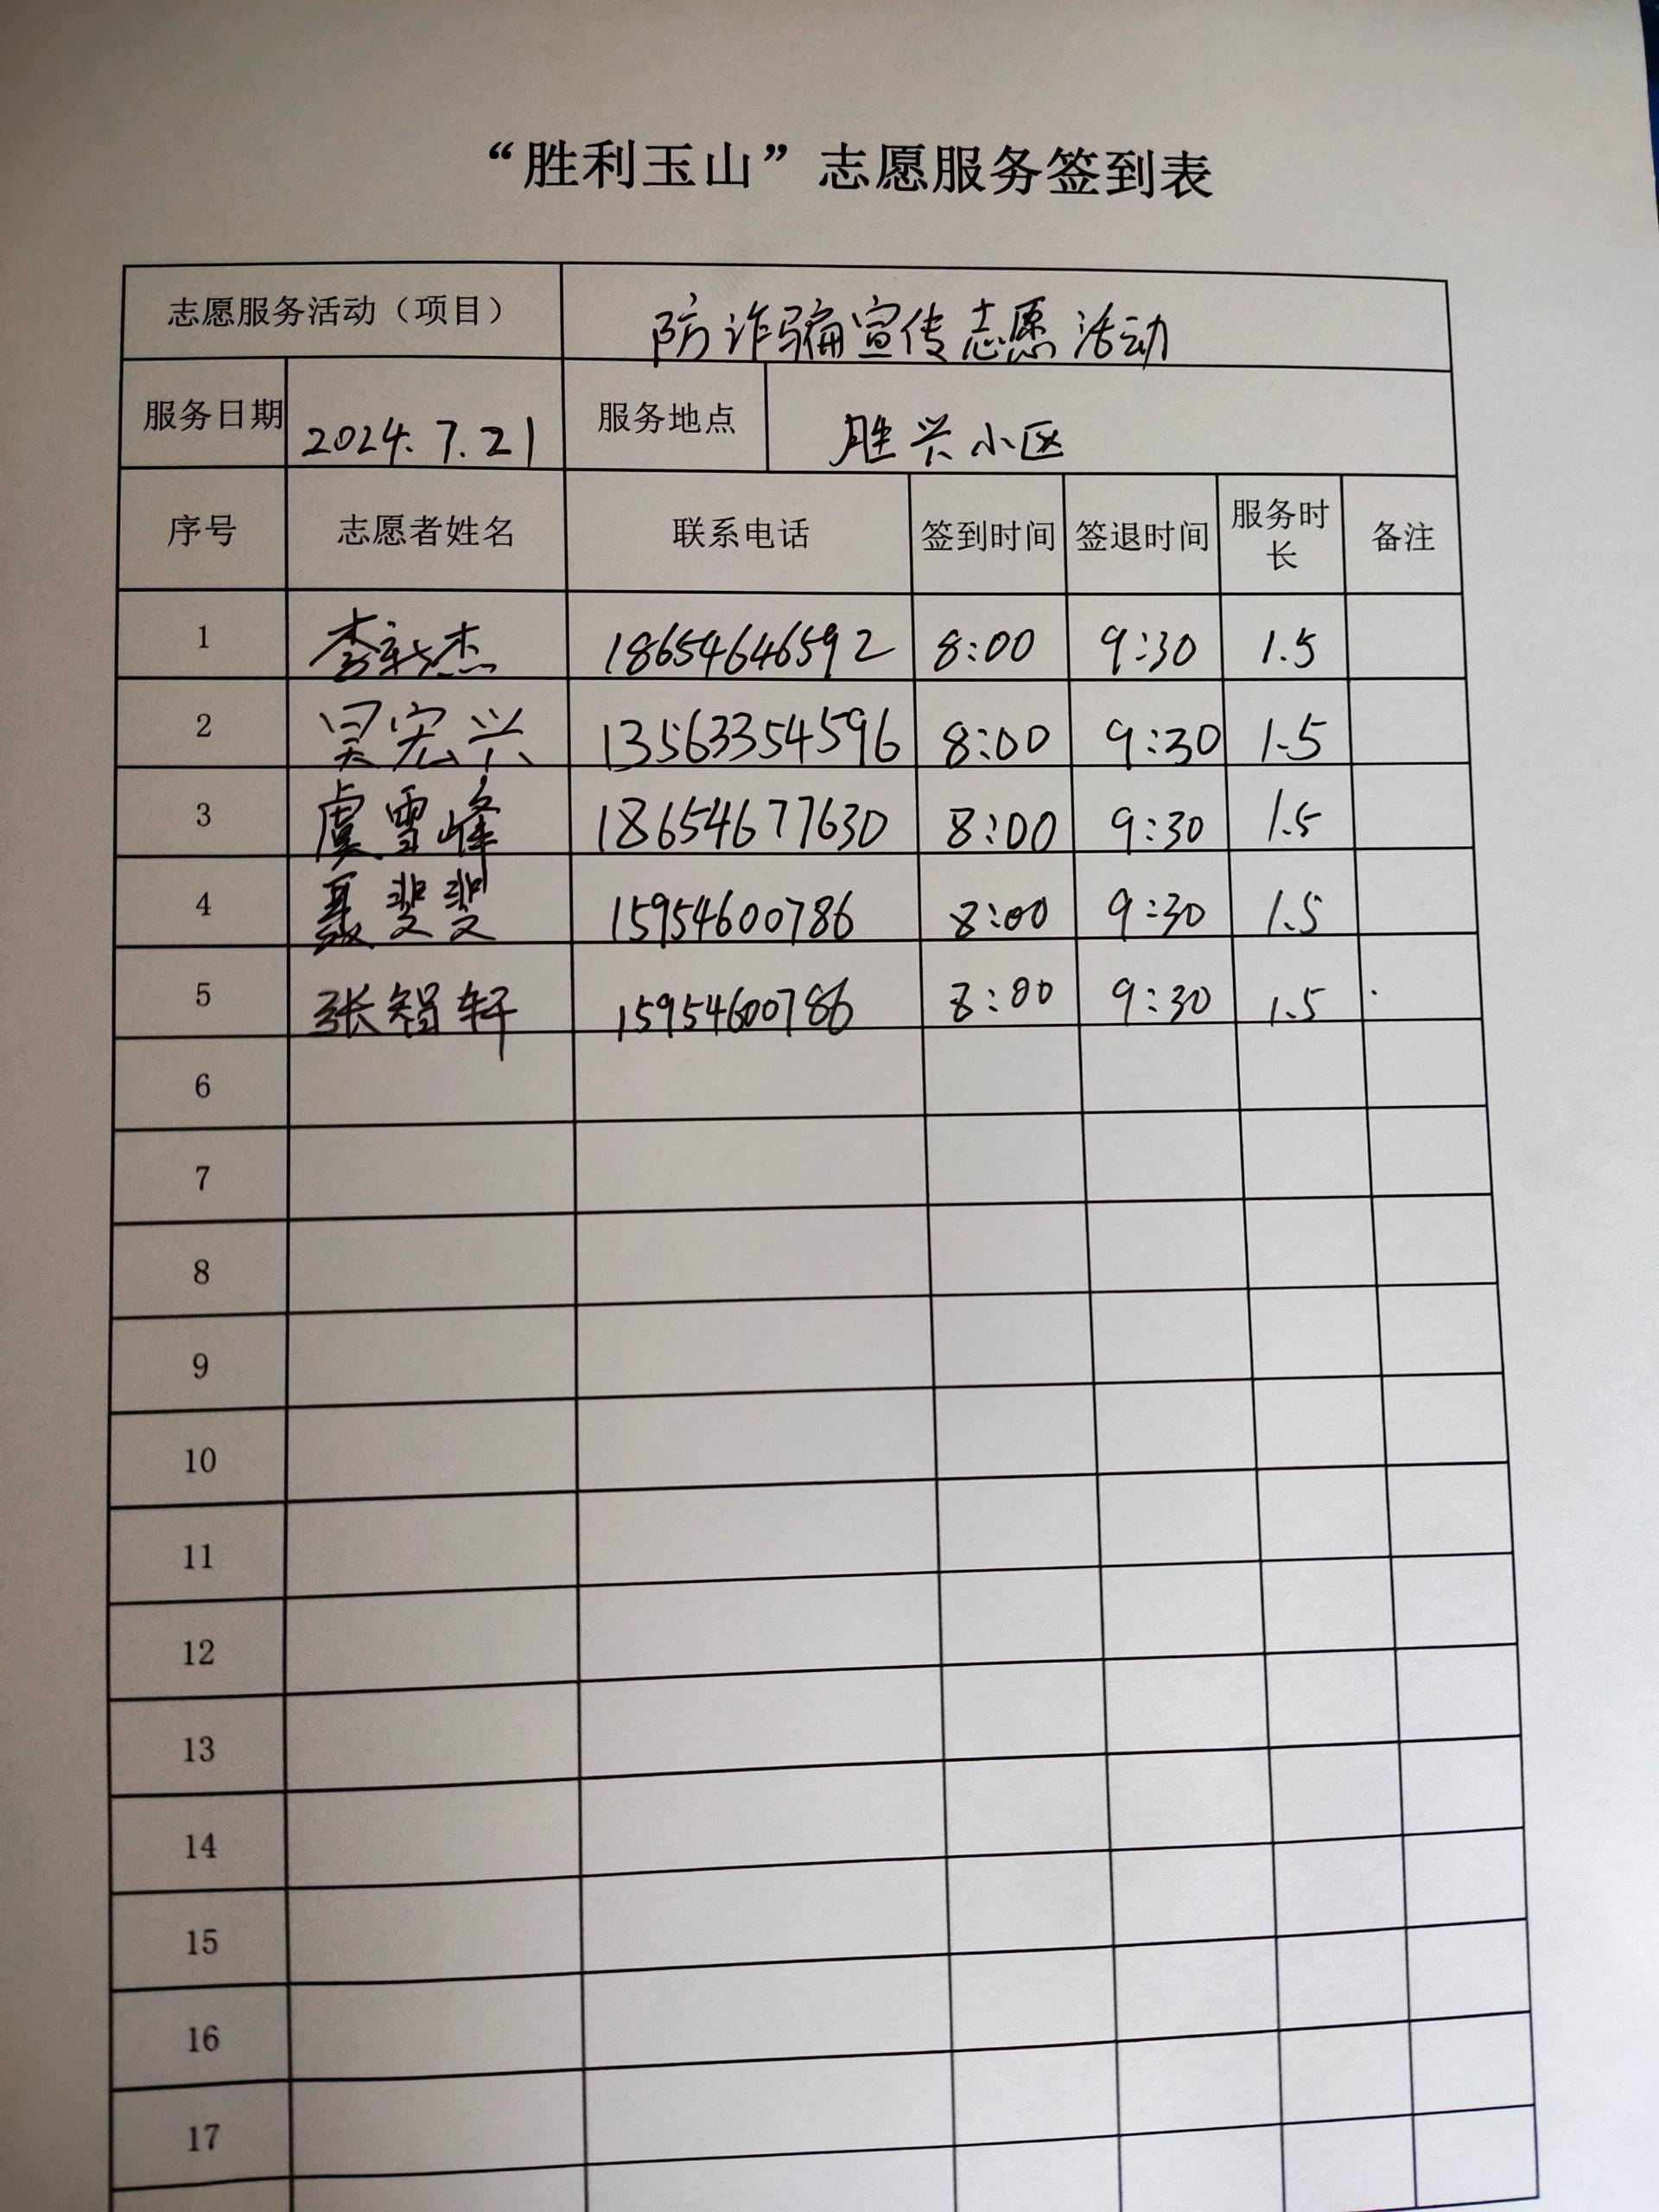 “胜利玉山”志愿服务签到表
志愿服务活动（项目） 防诈骗宣传志愿活动
服务日期 2024.7.21 服务地点 胜兴小区
序号 志愿者姓名 联系电话 签到时间 签退时间 服务时长 备注
1 李新杰 18654646592 8:00 9:30 1.5
2 吴宏兴 13563354596 8:00 9:30 1.5
3 虞雪峰 18654677630 8:00 9:30 1.5
4 聂斐斐 15954600786 8:00 9:30 1.5
5 张智轩 15954600786 8:00 9:30 1.5
6
7
8
9
10
11
12
13
14
15
16
17